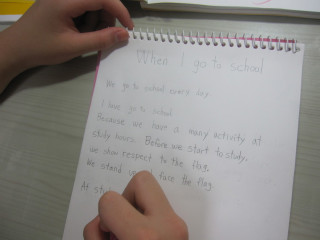 When I go to school
We go to school every day.
I love go to school
Because we have a many activity at
study hours. Before we start to study.
we show respect to the flag.
We stand up and face the flag.
At study